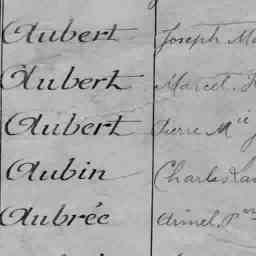 Aubert Joseph
Aubert Marcel
Aubert Pierre M
Aubin Charles
Aubrée Aimel